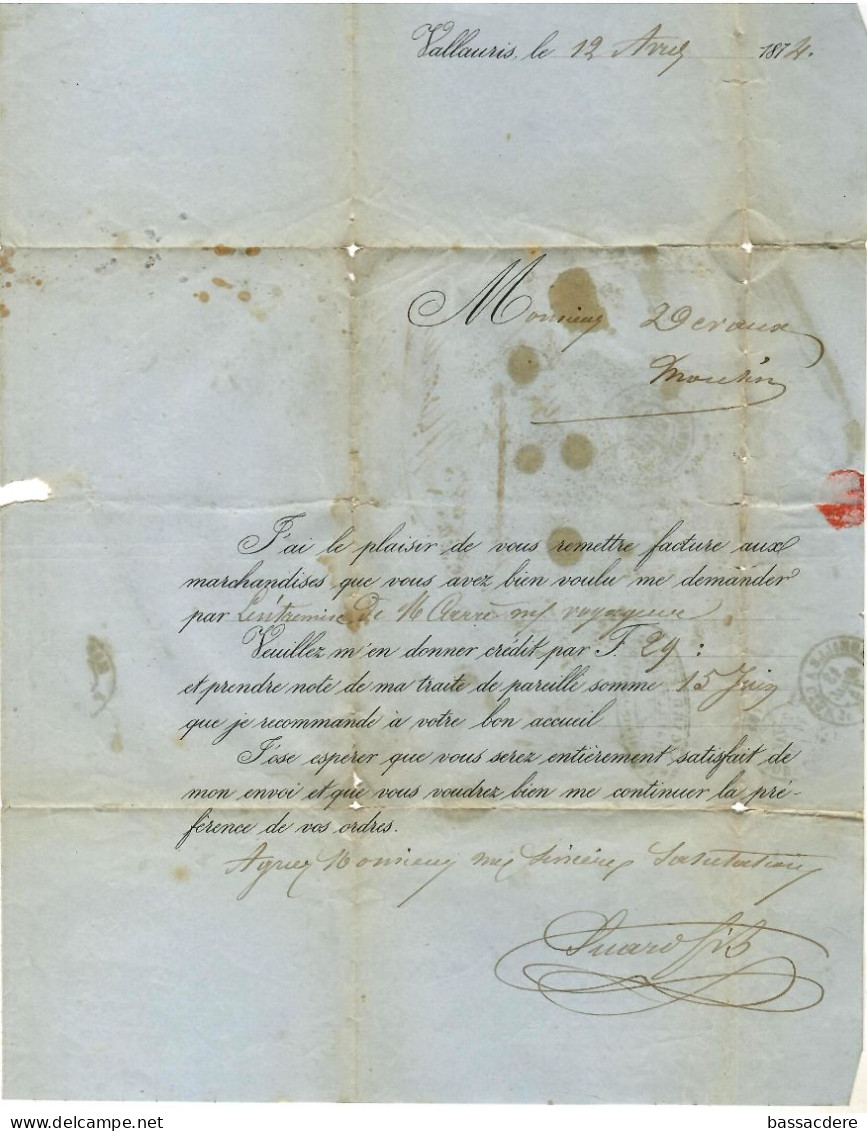 Vallauris, le 12 Avril 1874.
Monsieur Devaux
Moulin
J'ai le plaisir de vous remettre facture aux
marchandises que vous avez bien voulu me demander
par L'entremise de M Carré mon voyageur
Veuillez m'en donner crédit par F. 29:
et prendre note de ma traite de pareille somme 15 Juin
que je recommande à votre bon accueil
J'ose espérer que vous serez entièrement satisfait de
mon envoi et que vous voudrez bien me continuer la pré-
férence de vos ordres.
Agréez Monsieur mes Sincères Salutations
fils
bassacdere